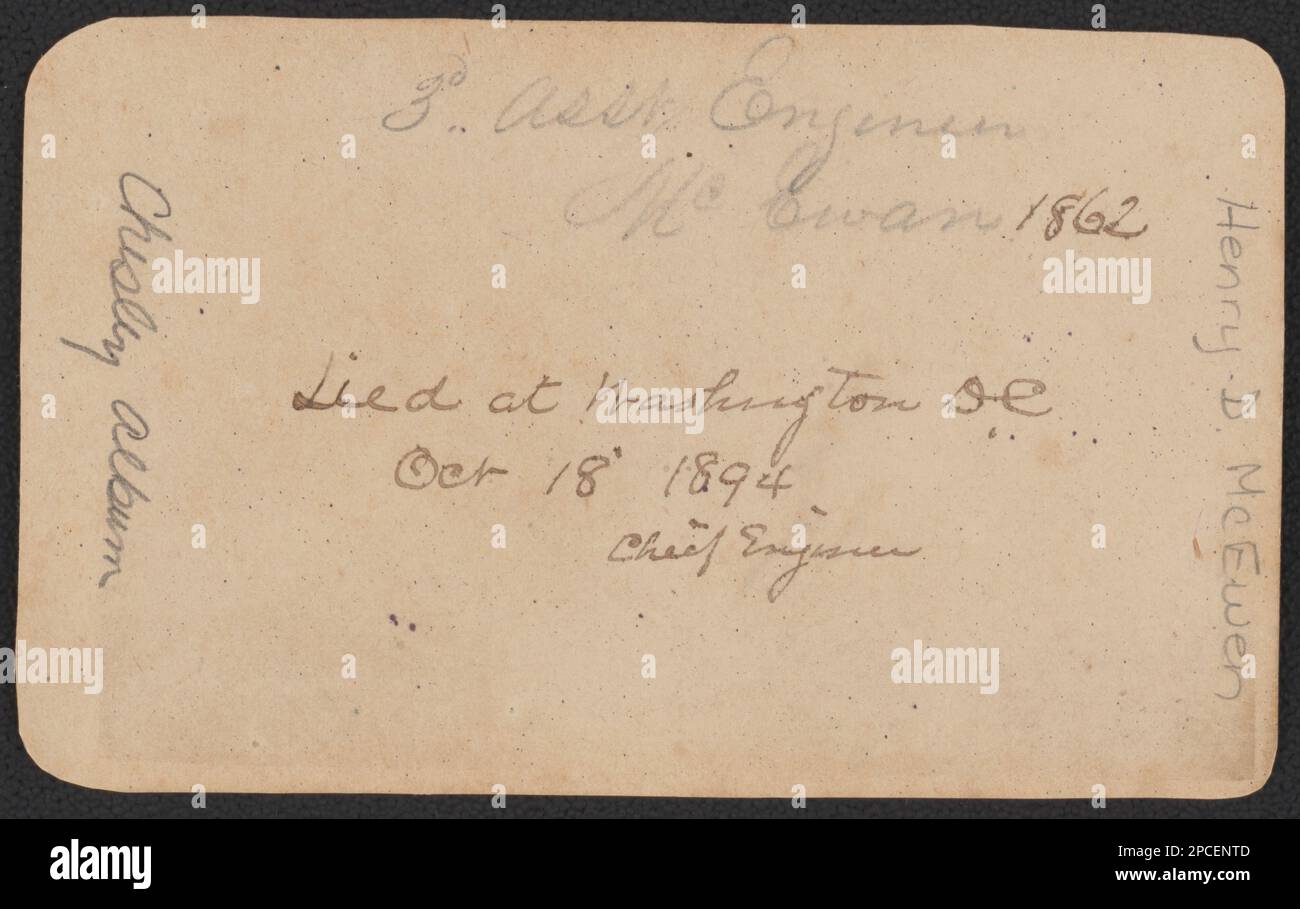 3d. Asst Engineer
Mc Ewan 1862
Died at Washington DC
Oct 18 1894
Chief Engineer
Chesley album
Henry D. McEwen
alamy
a
alamy
Image ID: 2PCENTD
www.alamy.com